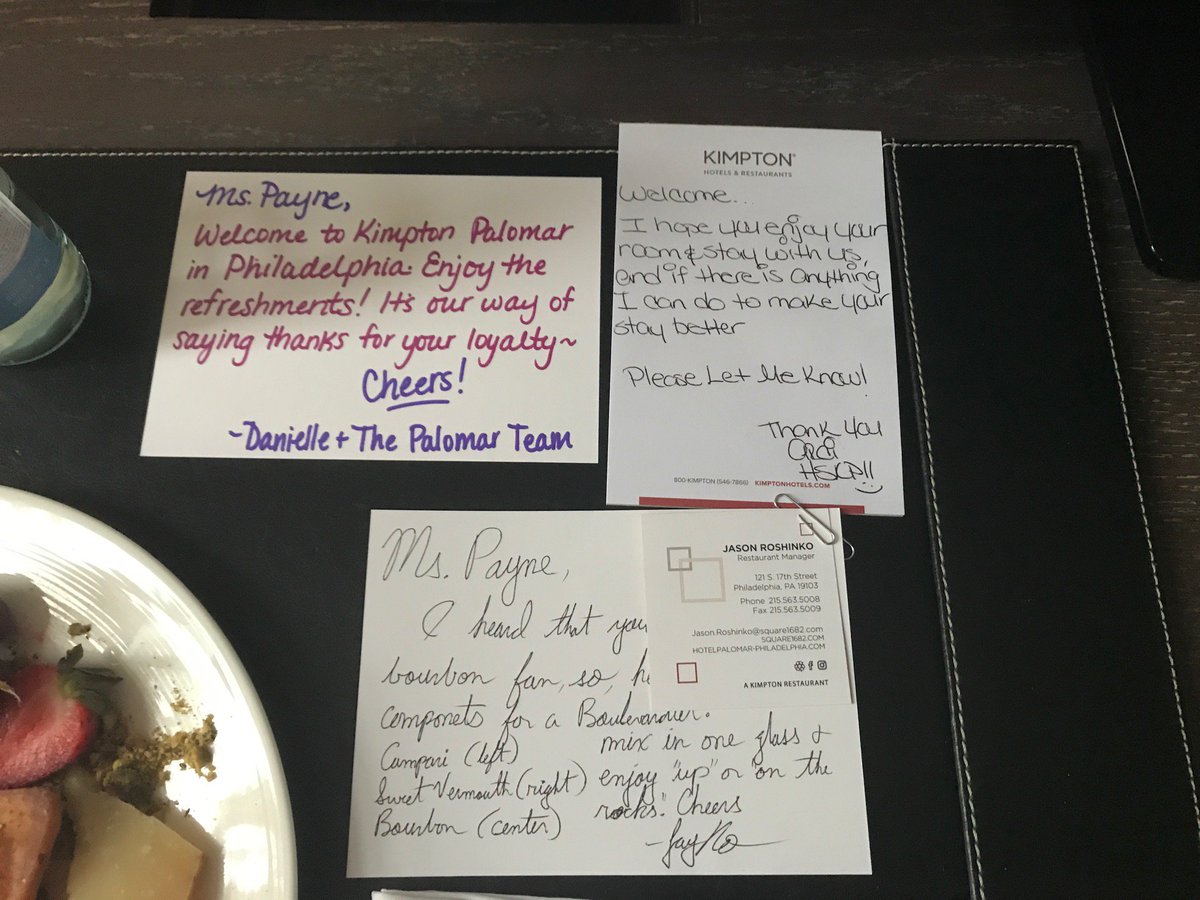 Ms. Payne,
Welcome to Kimpton Palomar
in Philadelphia. Enjoy the
refreshments! It's our way of
saying thanks for your loyalty~
Cheers!
-Danielle + The Palomar Team
KIMPTON®
HOTELS & RESTAURANTS
Welcome...
I hope you enjoy your
room & stay with us,
and if there is anything
I can do to make your
stay better
Please Let Me Know!
Thank You
HSKP!!
800-KIMPTON (546-7866) KIMPTONHOTELS.COM
Ms. Payne,
I heard that you
bourbon fan, so,
componets for a Boulevardier.
Campari (left)
Sweet Vermouth (right)
Bourbon (center)
mix in one glass &
enjoy "up" or "on the
rocks." Cheers
JASON ROSHINKO
Restaurant Manager
121 S. 17th Street
Philadelphia, PA 19103
Phone 215.563.5008
Fax 215.563.5009
Jason.Roshinko@square1682.com
SQUARE1682.COM
HOTELPALOMAR-PHILADELPHIA.COM
A KIMPTON RESTAURANT